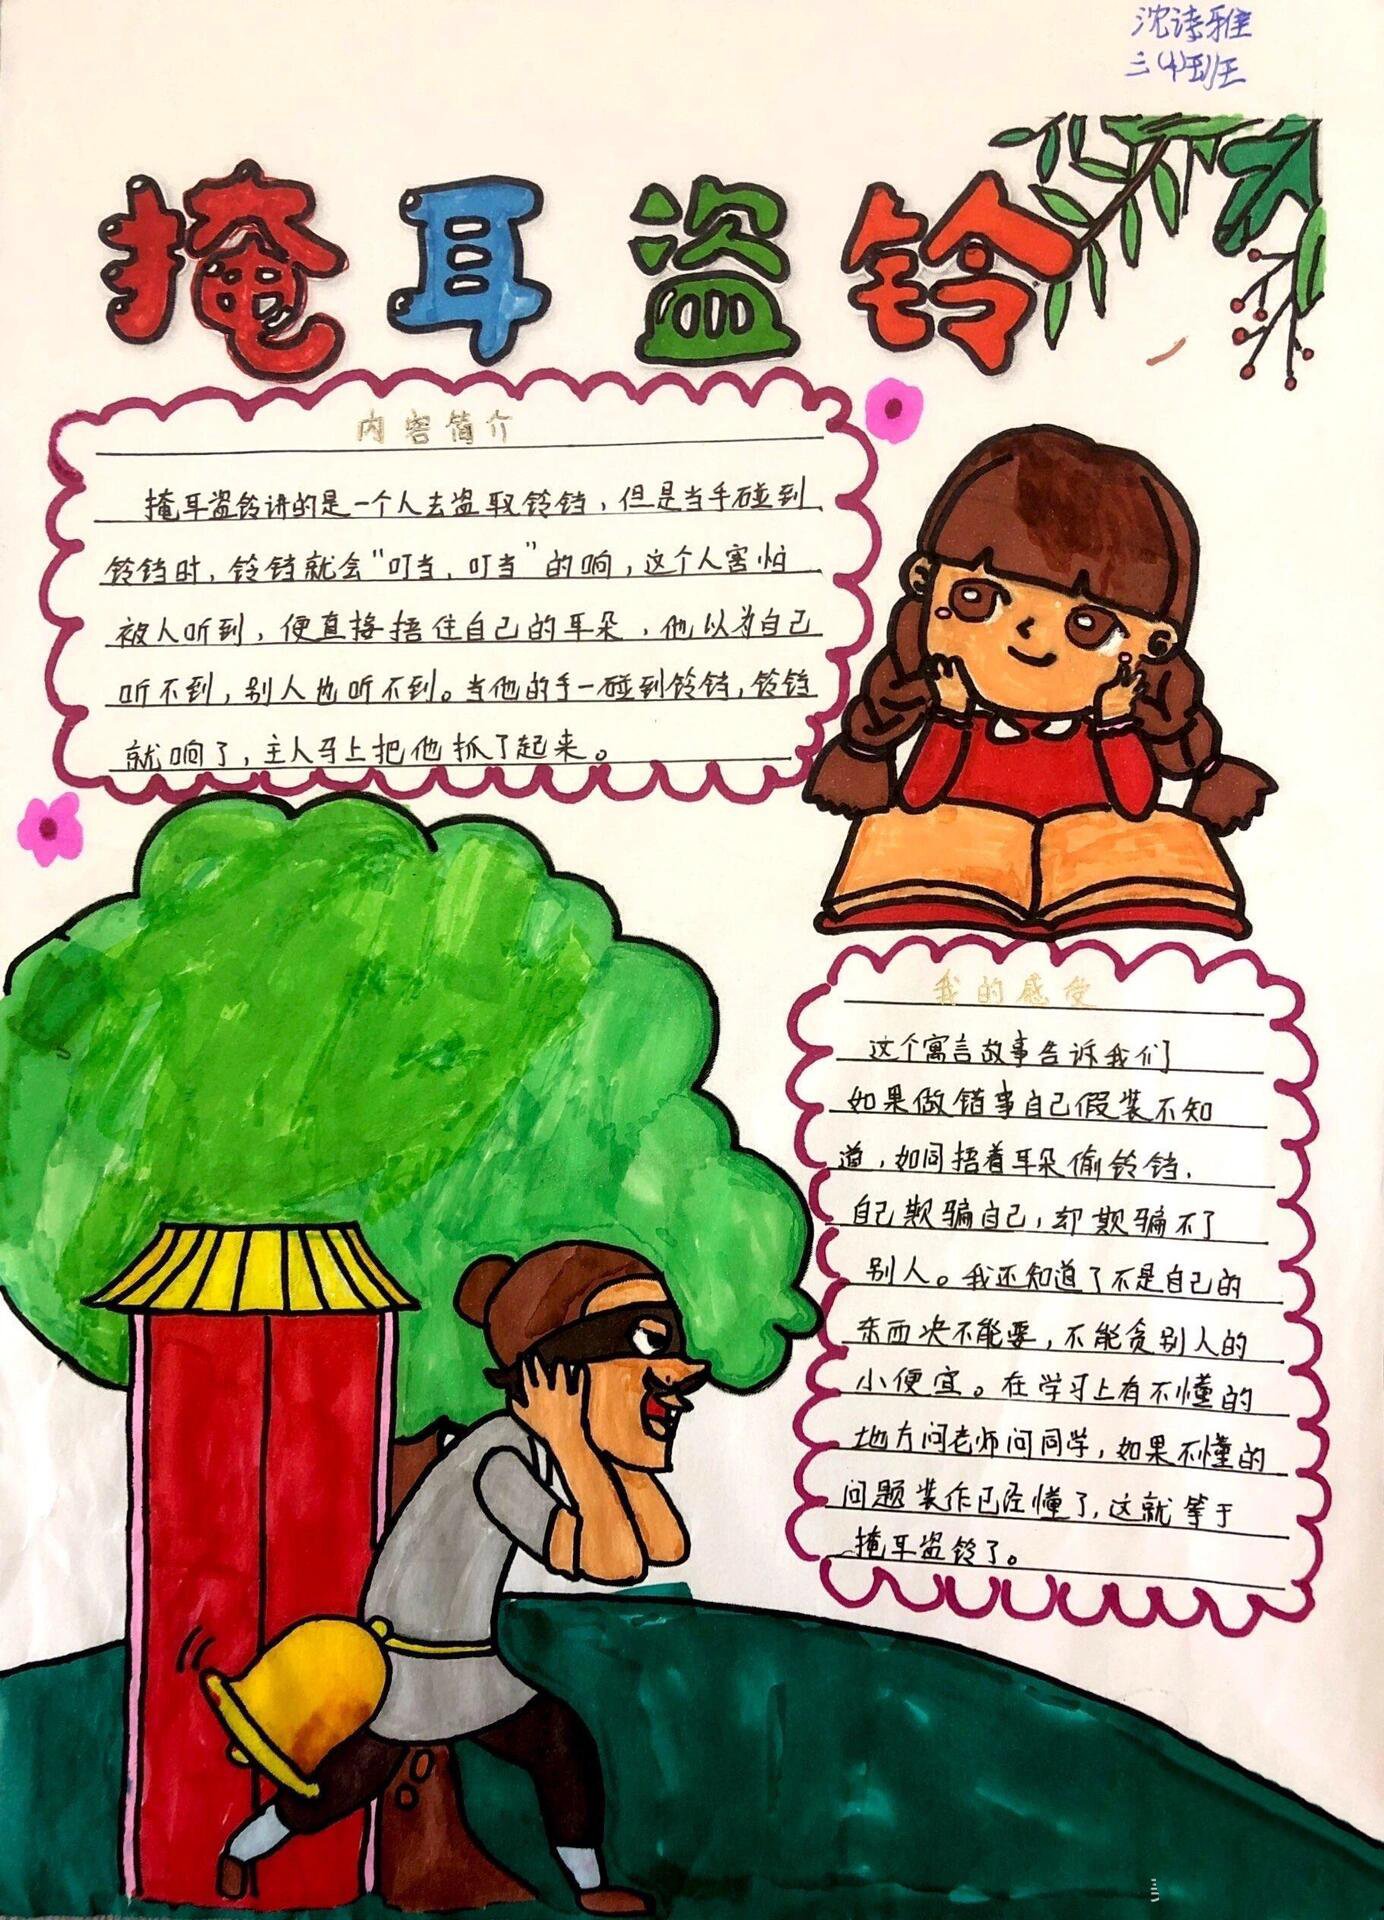 沈诗雅
三(4)班
掩耳盗铃
内容简介
掩耳盗铃讲的是一个人去盗取铃铛，但是当手碰到
铃铛时，铃铛就会“叮当，叮当”的响，这个人害怕
被人听到，便直接捂住自己的耳朵，他以为自己
听不到，别人也听不到。当他的手一碰到铃铛，铃铛
就响了，主人马上把他抓了起来。
我的感受
这个寓言故事告诉我们
如果做错事自己假装不知
道，如同捂着耳朵偷铃铛，
自己欺骗自己，却欺骗不了
别人。我还知道了不是自己的
东西决不能要，不能贪别人的
小便宜。在学习上有不懂的
地方问老师问同学，如果不懂的
问题装作已经懂了，这就等于
掩耳盗铃了。